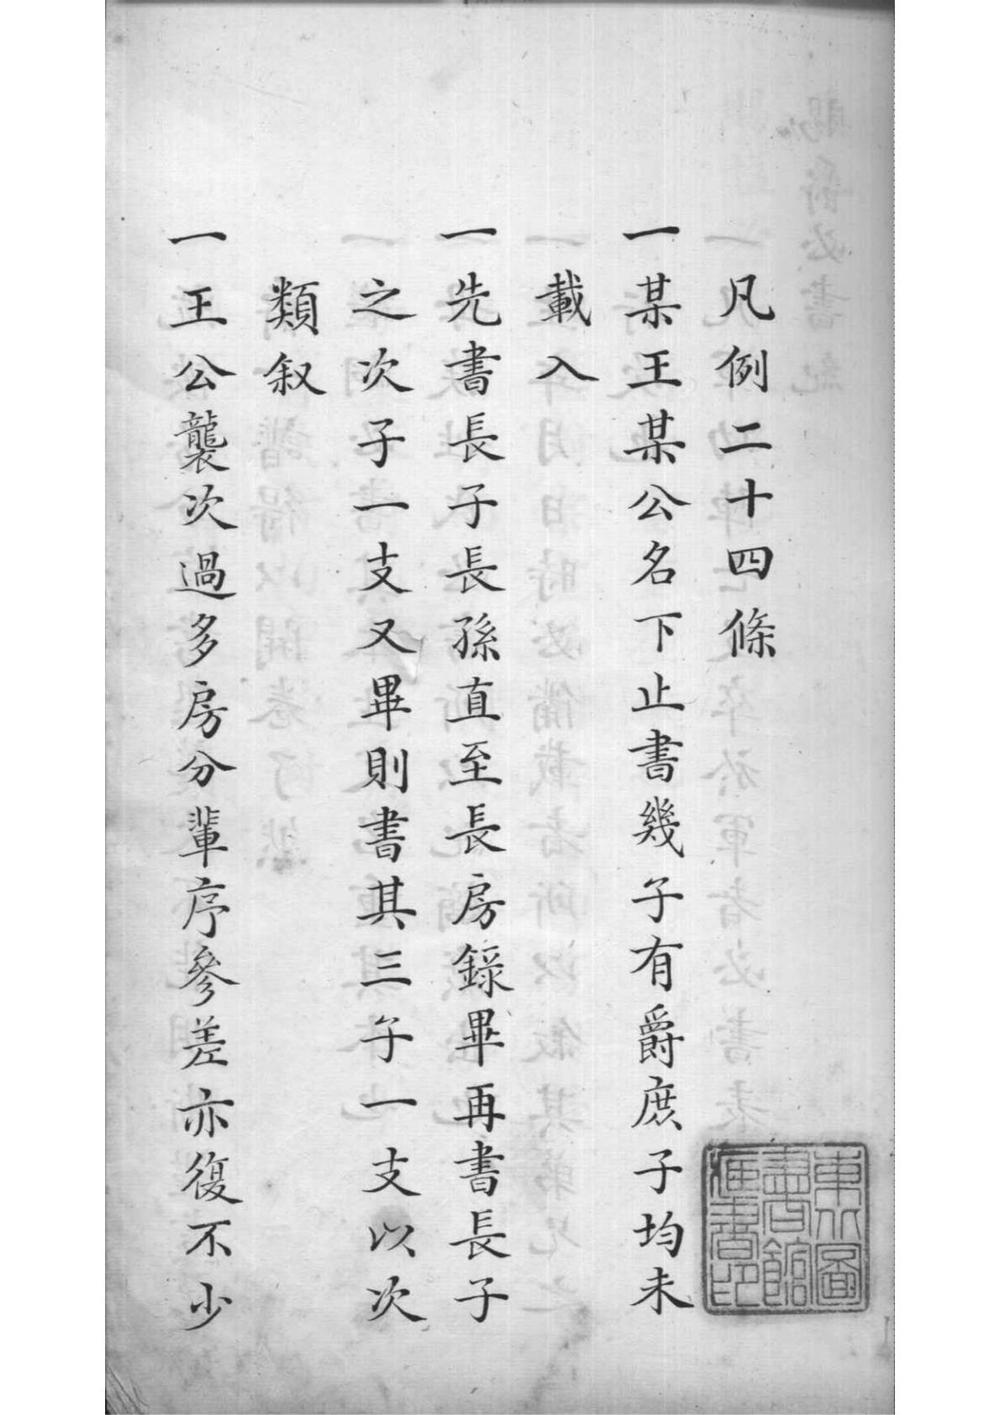 凡例二十四條
一某王某公名下止書幾子有爵庶子均未
載入
一先書長子長孫直至長房錄畢再書長子
之次子一支又畢則書其三子一支以次
類叙
一王公襲次過多房分輩序參差亦復不少
東北圖
書館